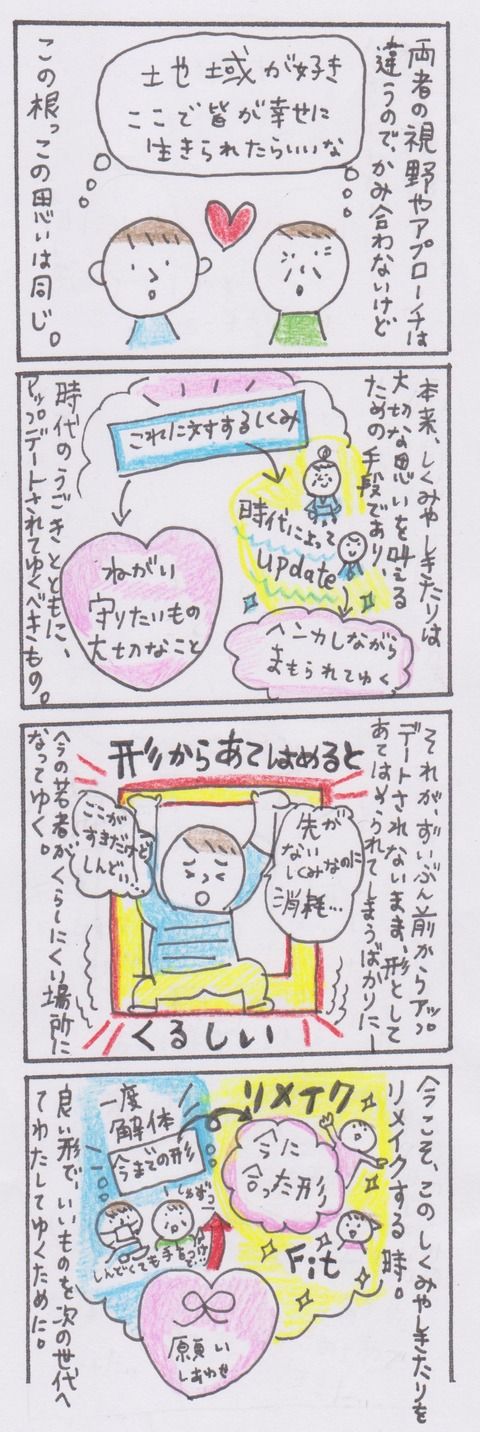 両者の視野やアプローチは
違うので、かみ合わないけど
土や域が好き
ここで皆が幸せに
生きられたらいいな
この根っこの思いは同じ。
本来、しくみやしきたりは
大切な思いを叶える
ための手段であり、
これに対するしくみ
時代によって
update
ヘンカしながら
まもられてゆく
ねがい
守りたいもの
大切なこと
時代のうごきとともに、
アップデートされてゆくべきもの。
それが、ずいぶん前からアップ
デートされないまま、形として
あてはめられてしまうばかりに…
形からあてはめると
先が
ないしくみなのに
消耗…
ここが
すきだけど
しんどい…
くるしい
今の若者がくらしにくい場所に
なってゆく。
今こそ、このしくみやしきたりを
リメイクする時。
リメイク
今に
合った形
Fit
一度
解体
今までの形
しんどくても
手をつけて…
願い
しあわせ
良い形で、いいものを次の世代へ
てわたしてゆくために。